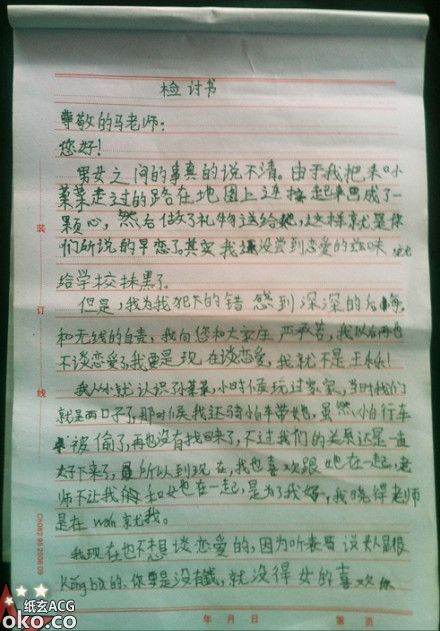 检讨书
尊敬的马老师:
您好!
男女之间的事真的说不清。由于我把和小
菜菜走过的路在地图上连接起来四成了一
颗心,然后做了礼物送给她,这样就是你
们所说的早恋了其实我还没尝到恋爱的滋味
给学校抹黑了。
但是,我为我犯下的错感到深深的后悔
和无线的自责,我向您和大家庄严承若,我以后再也
不谈恋爱了我要是现在谈恋爱,我就不是王
我从小就认识孙菜菜,小时候在玩过家家,当时我们
就是两口子了,那时候我还骑自车带她,虽然自行车
被偷了,再也没有找回来了,不过我们的关系还是一直
好下来了,所以到现在,我也喜欢跟她在一起,老
师不让我们和她在一起,是为了我好,我晓得老师
是在wan救我。
我现在也不想谈恋爱的,因为听表哥说女人是很
kong bu的,你要是没有钱,就没得女的喜欢你
装
订
线
年 月 日
第 页
纸玄ACG
OKO.CO